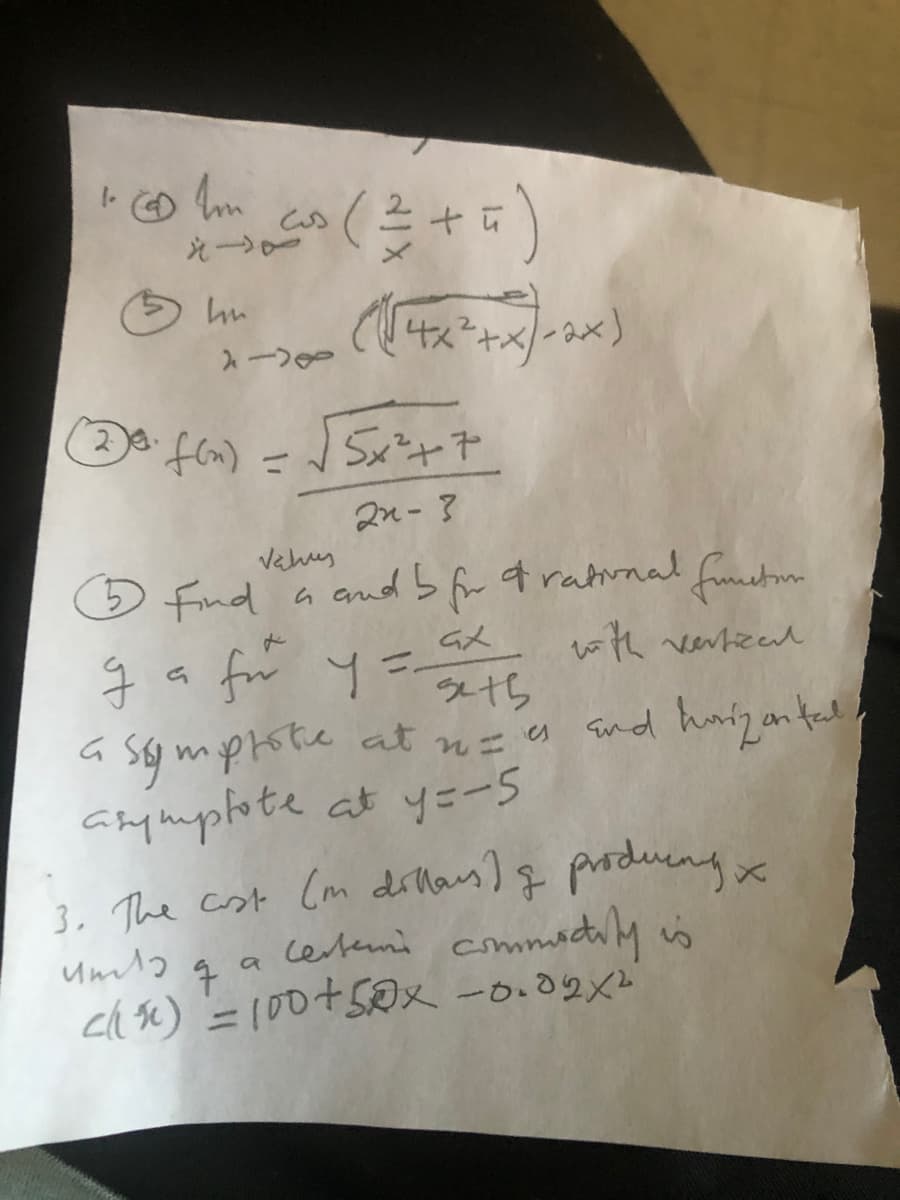 1. (a) lim cos ( 2/x + π )
x→∞
(b) lim ( (√4x²+x) -2x )
x→∞
(2) a. f(x) = √5x²+7
2x - 3
values
(b) Find a and b for rational function
y = ax with vertical
x+b
asymptote at x = and horizontal
asymptote at y=-5
3. The cost (in dollars) of producing x
units of a certain commodity is
c(x) = 100+50x -0.02x²